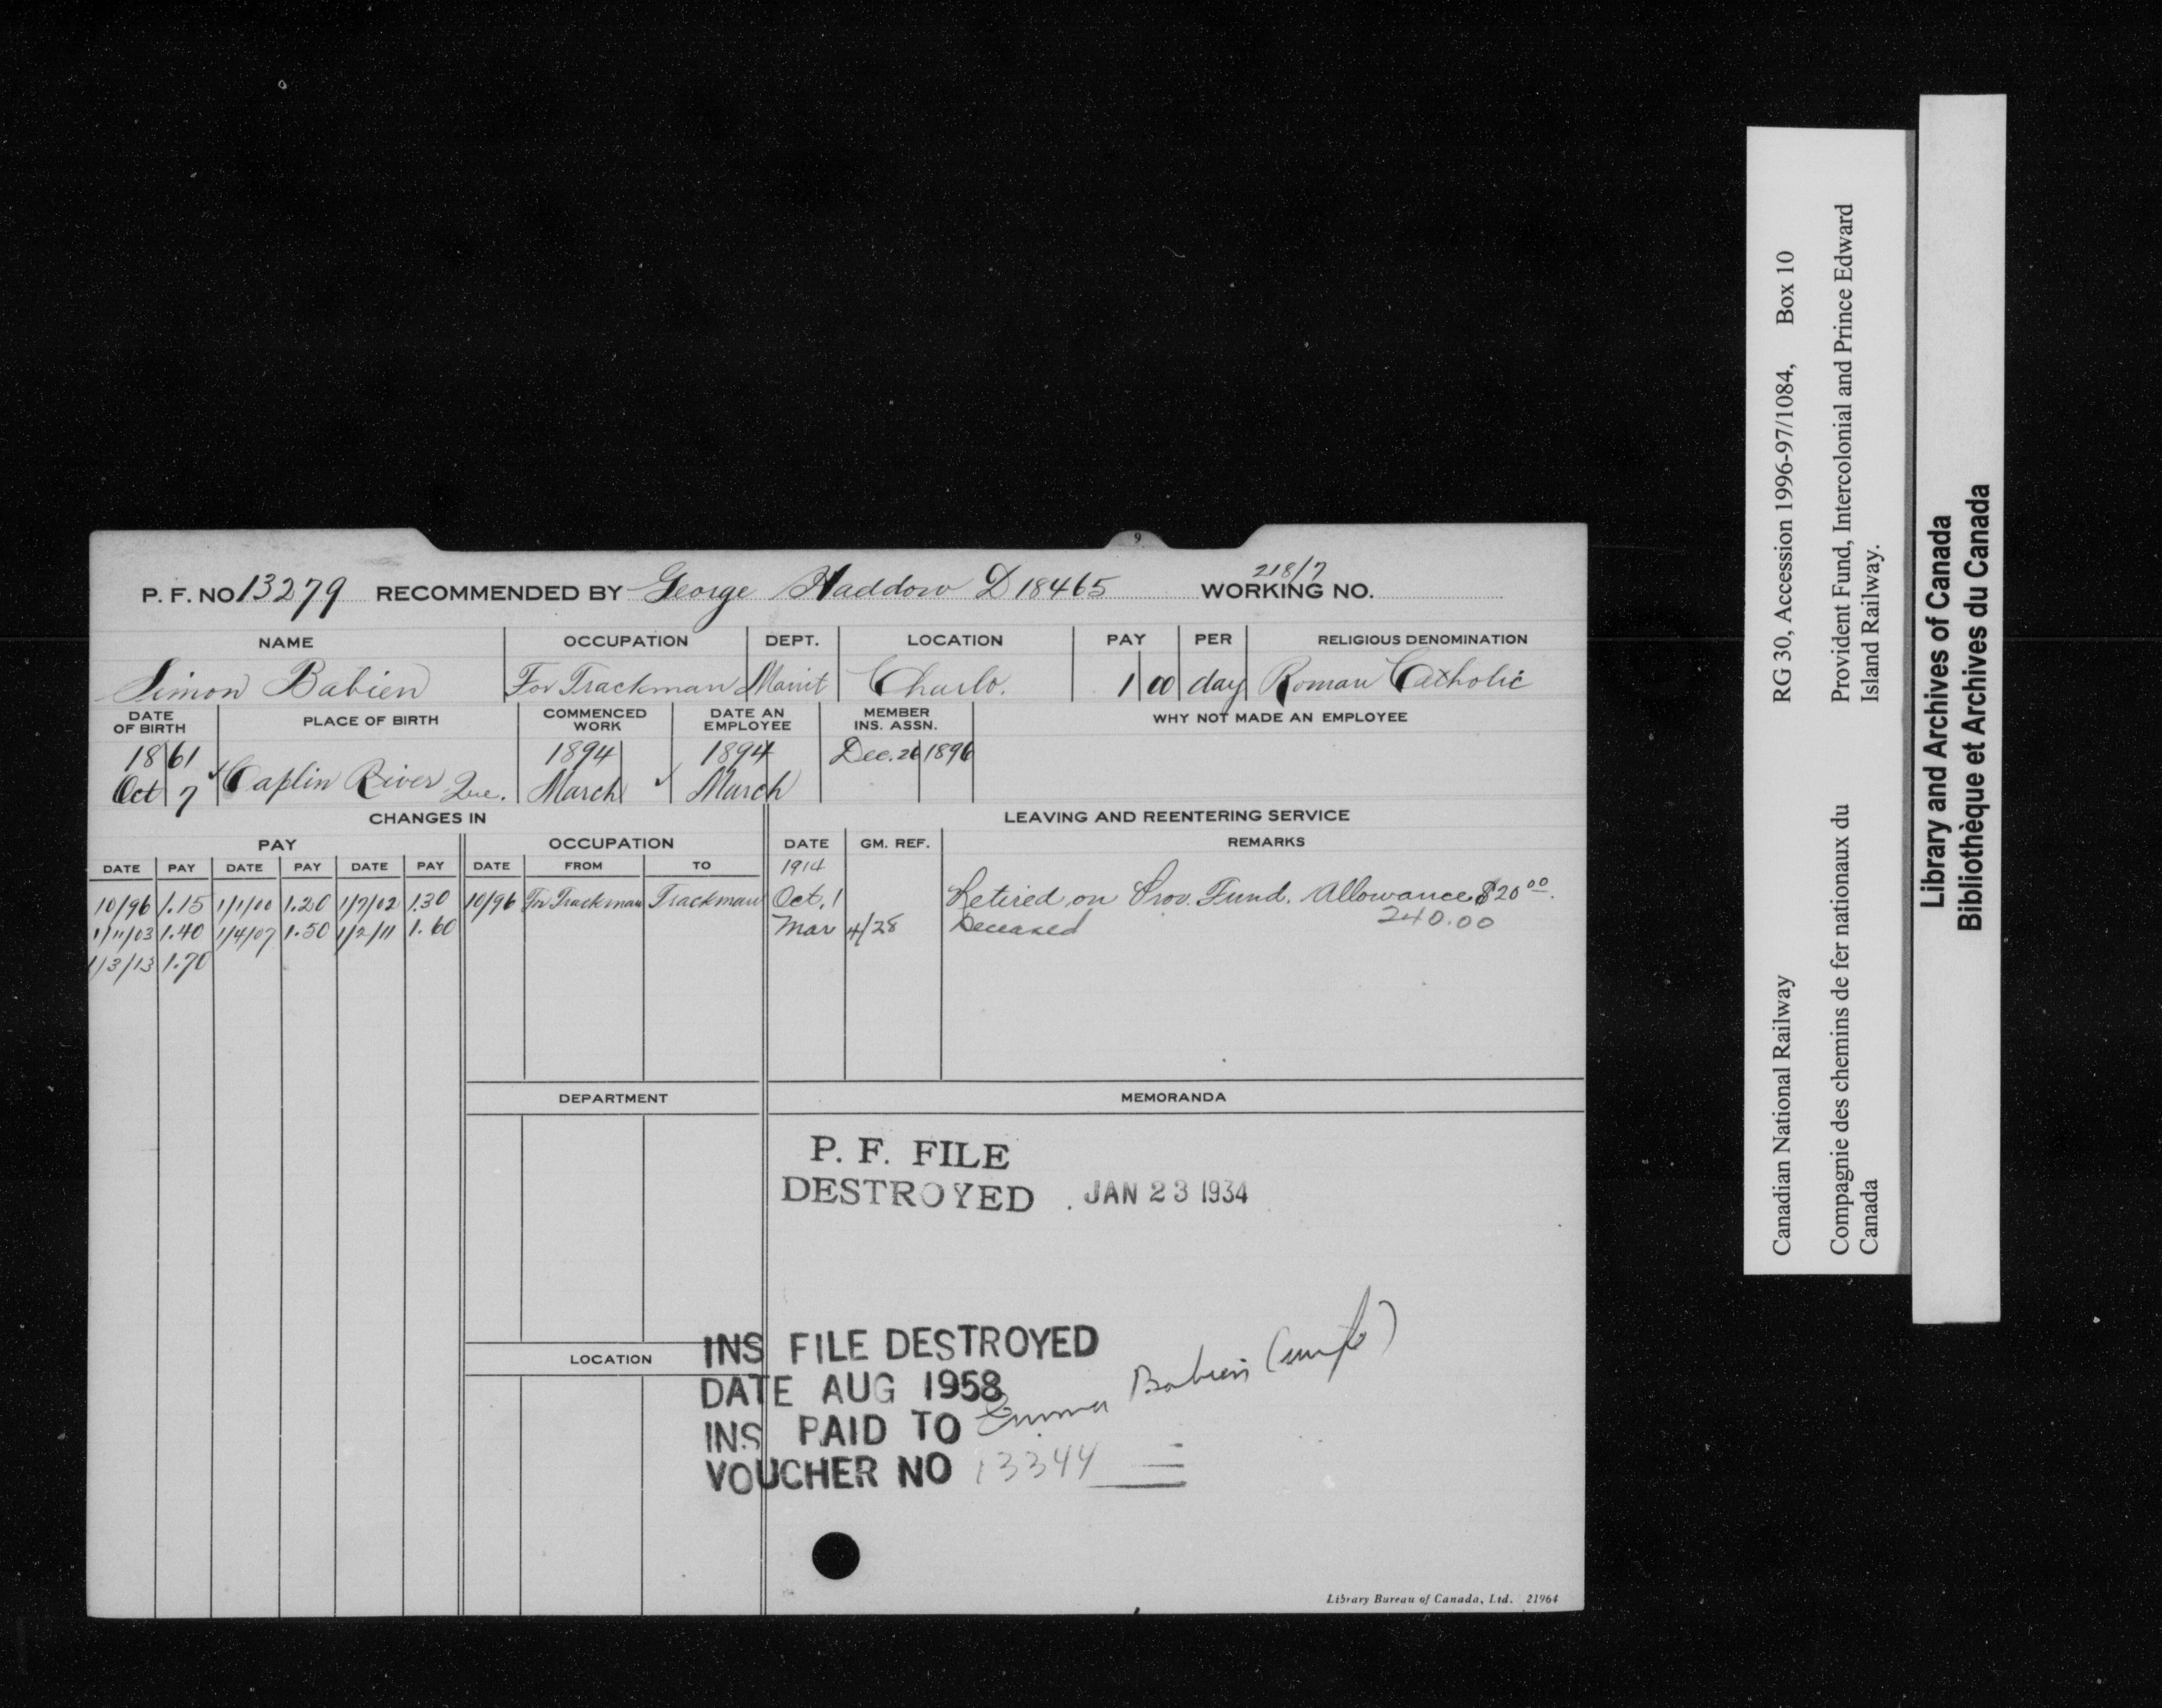 9
218/7
P. F. NO 13279 RECOMMENDED BY George Haddow D 18465 WORKING NO.
NAME OCCUPATION DEPT. LOCATION PAY PER RELIGIOUS DENOMINATION
Simon Babien For Trackman Maint Charlo. 1 00 day Roman Catholic
DATE OF BIRTH PLACE OF BIRTH COMMENCED WORK DATE AN EMPLOYEE MEMBER INS. ASSN. WHY NOT MADE AN EMPLOYEE
18 61 1894 1894 Dec. 26 1896
Oct 7 Caplin River Que. March March
CHANGES IN LEAVING AND REENTERING SERVICE
PAY OCCUPATION DATE GM. REF. REMARKS
DATE PAY DATE PAY DATE PAY DATE FROM TO 1914
10/96 1.15 1/1/00 1.20 1/7/02 1.30 10/96 For Trackman Trackman Oct. 1 Retired on Prov. Fund. Allowance $20 00.
1/11/03 1.40 1/4/07 1.50 1/2/11 1.60 Mar 4/28 Deceased 240.00
1/3/13 1.70
DEPARTMENT MEMORANDA
P. F. FILE
DESTROYED . JAN 23 1934
LOCATION
INS FILE DESTROYED
DATE AUG 1958
INS PAID TO Emma Babien (wife)
VOUCHER NO 13344
Library Bureau of Canada, Ltd. 21964
Canadian National Railway RG 30, Accession 1996-97/1084, Box 10
Compagnie des chemins de fer nationaux du Provident Fund, Intercolonial and Prince Edward
Canada Island Railway.
Library and Archives of Canada
Bibliothèque et Archives du Canada